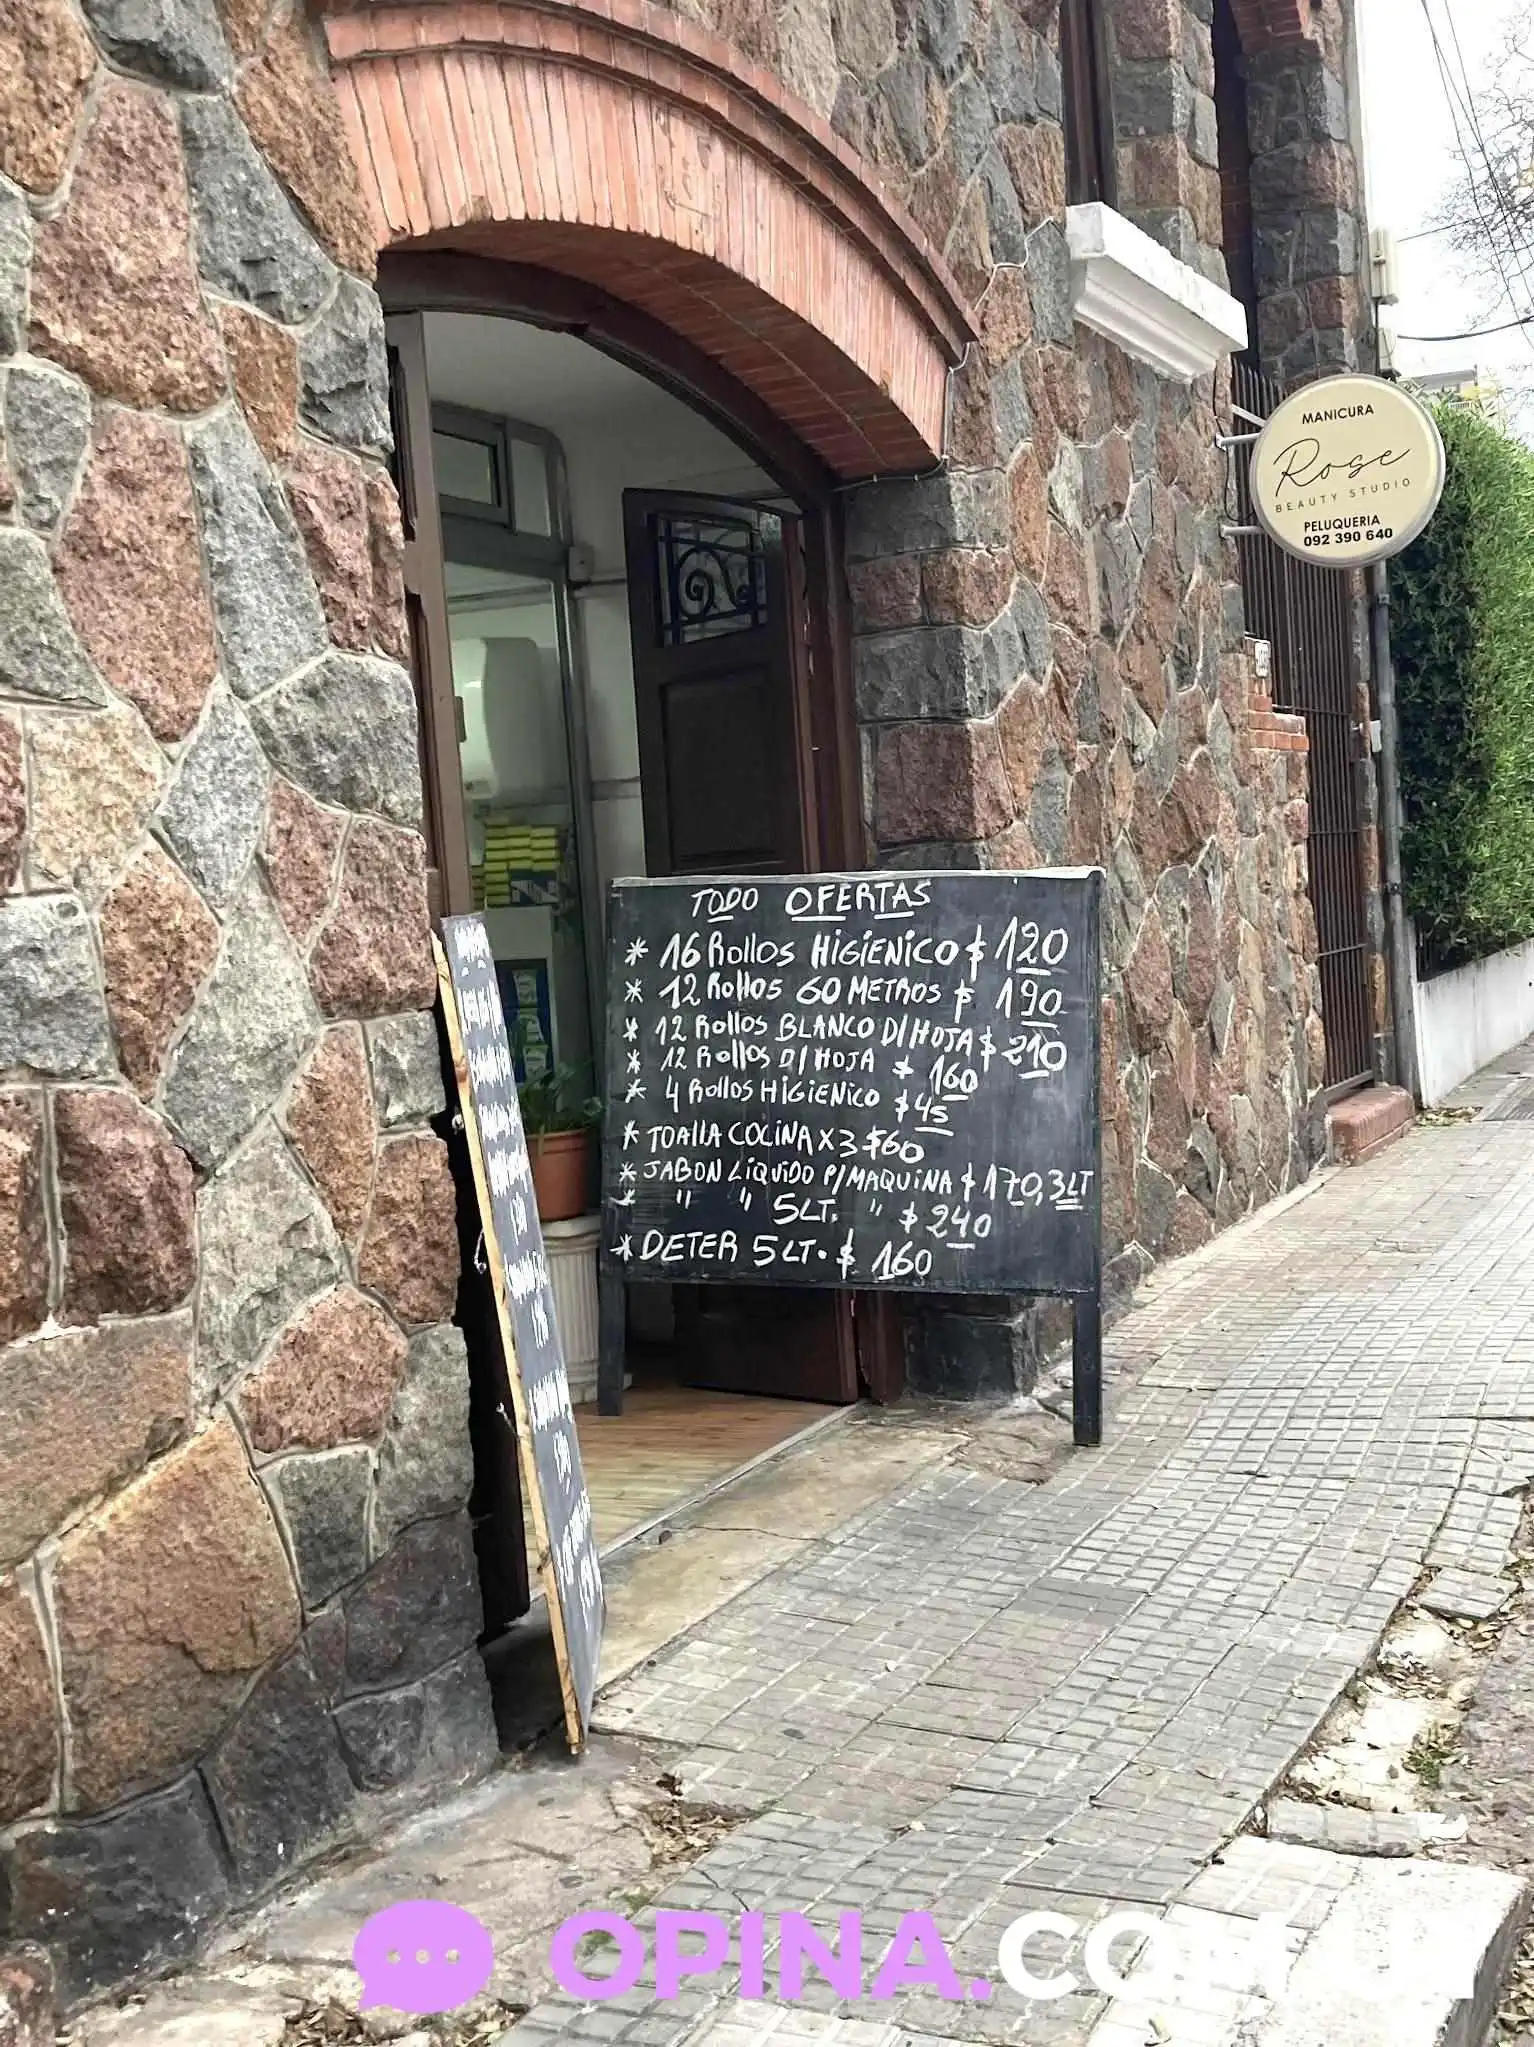 MANICURA
Rose
BEAUTY STUDIO
PELUQUERIA
092 390 640
TODO OFERTAS
* 16 Rollos HIGIENICO $ 120
* 12 Rollos 60 METROS $ 190
* 12 Rollos BLANCO D/HOJA $ 210
* 12 Rollos D/HOJA $ 160
* 4 Rollos HIGIENICO $45
* TOALLA COCINA X3 $60
* JABON LIQUIDO P/MAQUINA $ 170,3LT
* " " 5LT. " $ 240
* DETER 5 LT. $ 160
OPINA.COM.UY